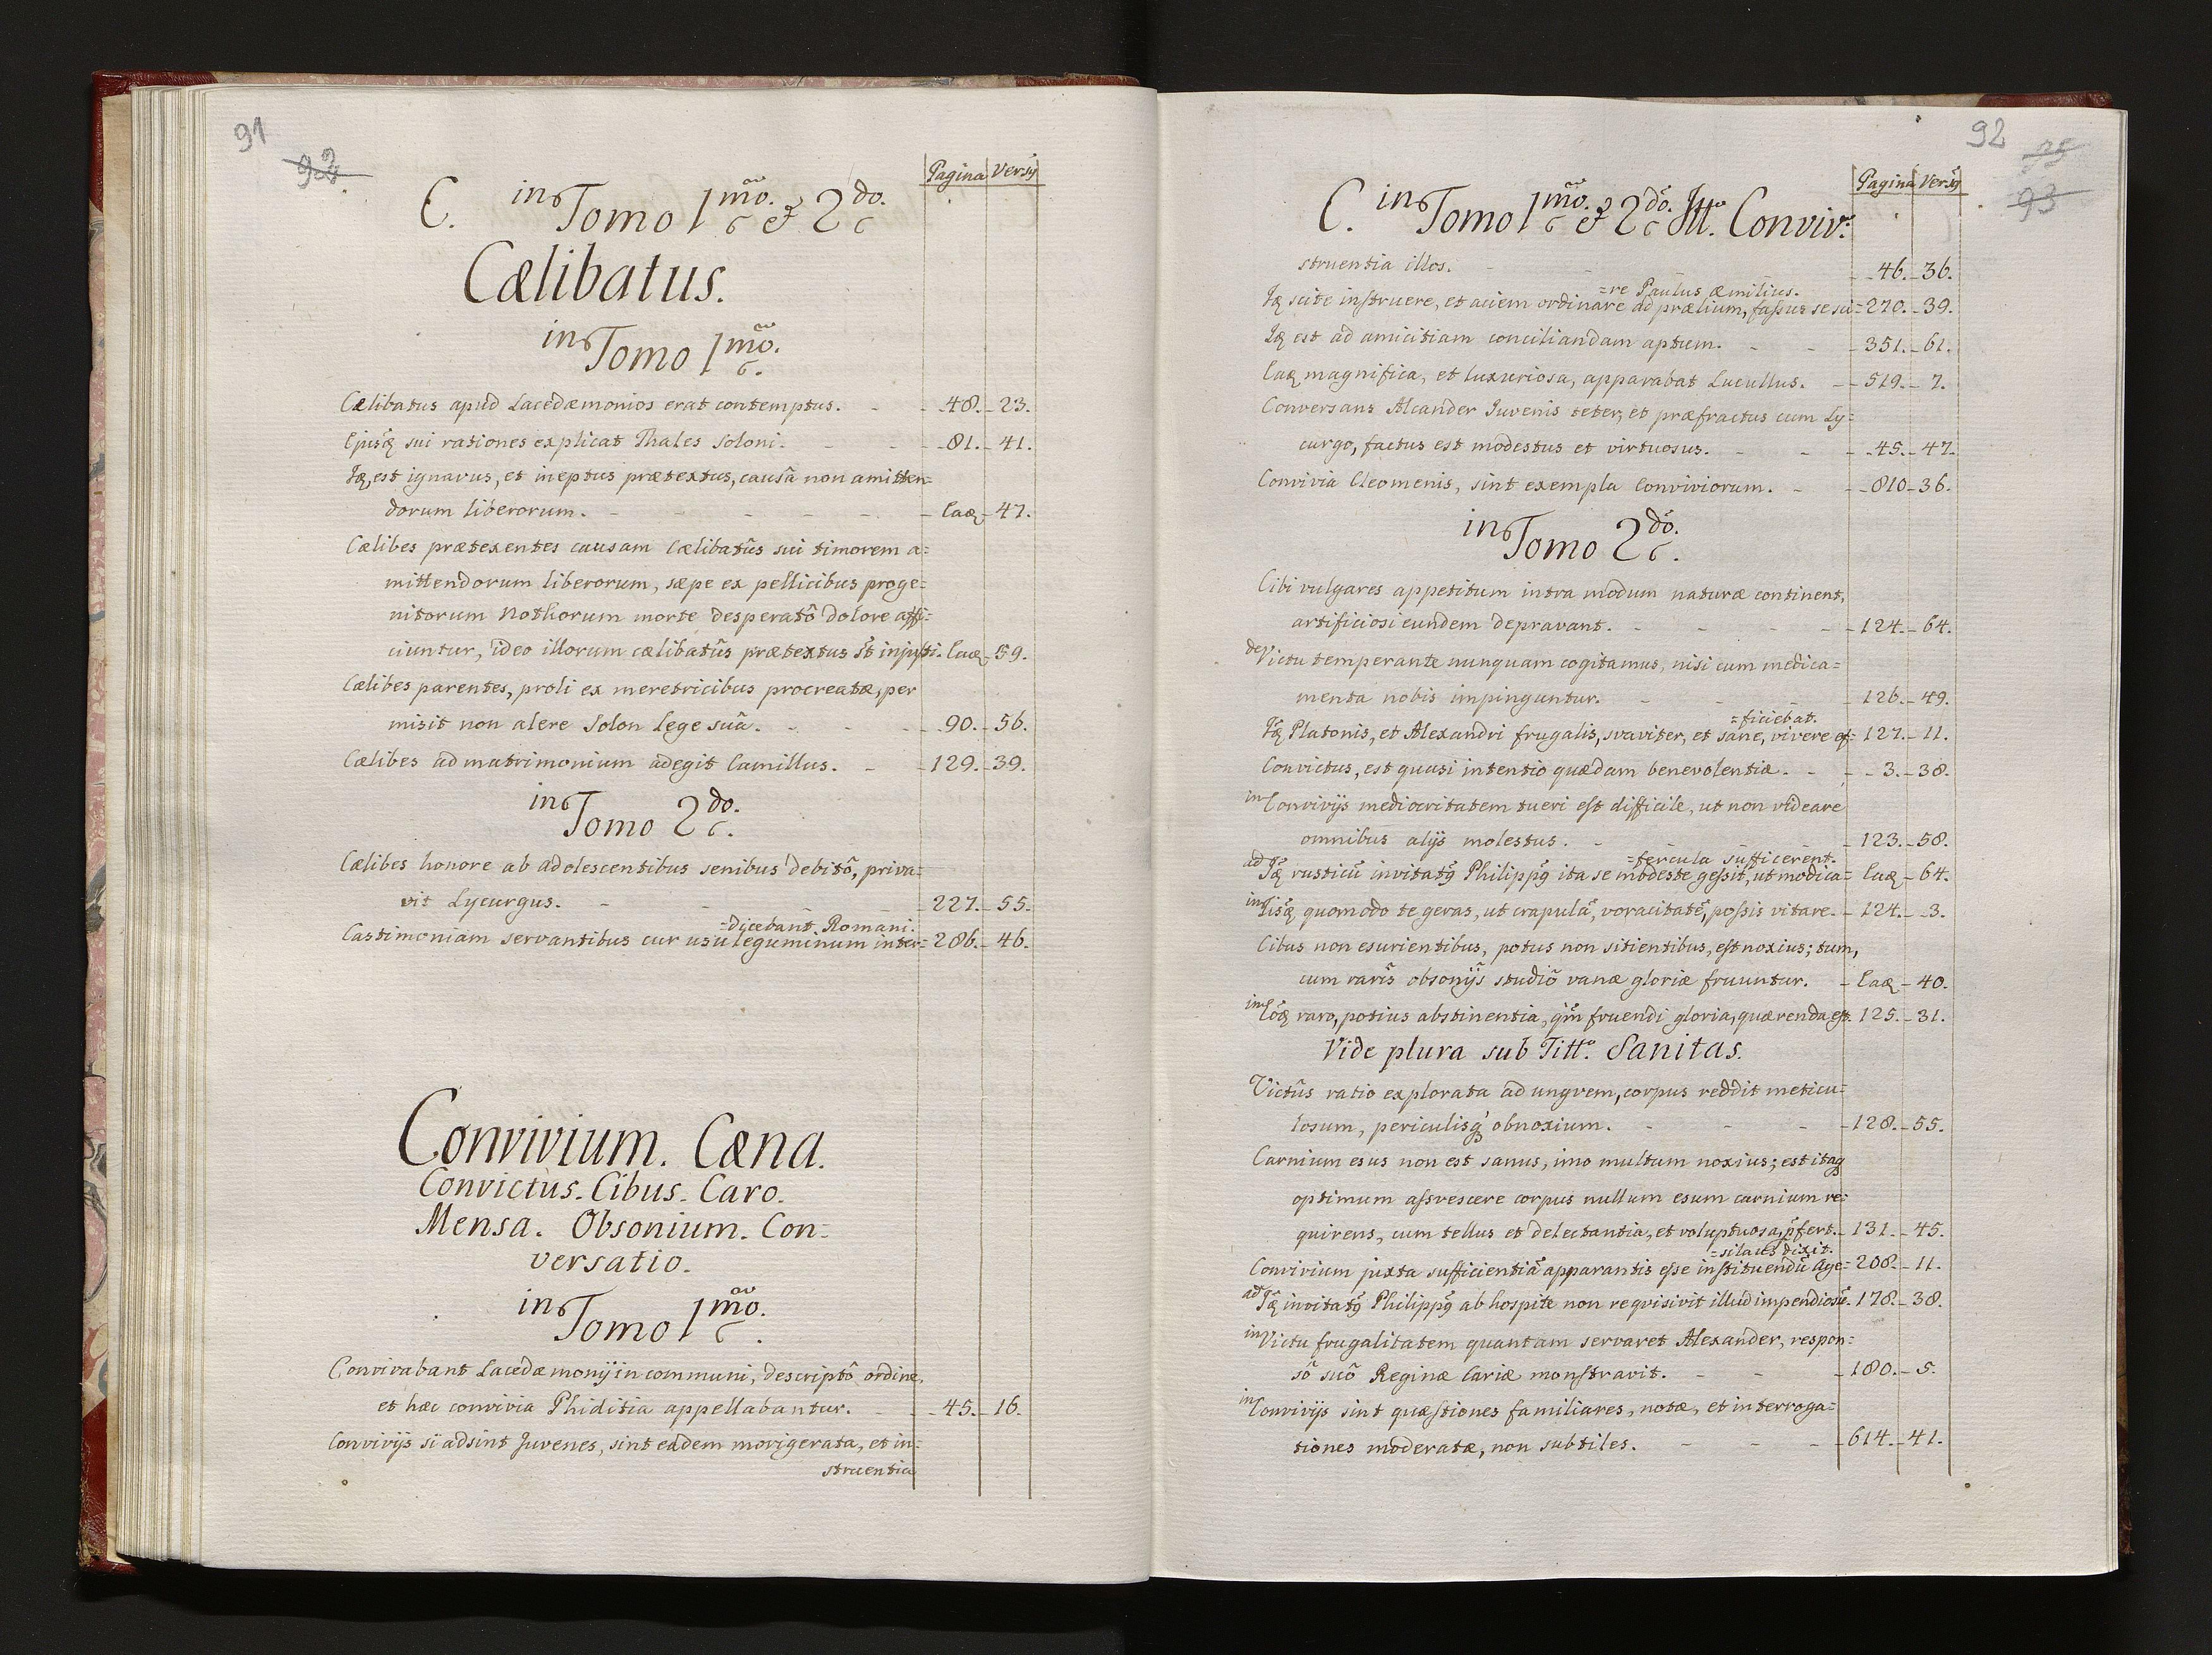 91
92.
Pagina Versꝯ
C. in Tomo 1mo. & 2do.
Cælibatus.
in Tomo 1mo.
Cælibatus apud Lacedæmonios erat contemptus. - - 48. - 23.
Ejusq̃ sui rationes explicat Thales Soloni. - - 81. - 41.
Iq̃, est ignavus, et ineptus prætextus, causâ non amitten=
dorum liberorum. - - - - - - Eaq̃ - 47.
Cælibes prætexentes causam Cælibatûs sui timorem a=
mittendorum liberorum, sæpe ex pellicibus proge=
nitorum Nothorum morte desperatô dolore affi=
ciuntur, ideo illorum cælibatûs prætextus st̃ injusti. Eaq̃ - 59.
Cælibes parentes, proli ex meretricibus procreatæ, per
misit non alere Solon lege suâ. - - - 90. - 56.
Cælibes ad matrimonium adegit Camillus. - - 129. - 39.
in Tomo 2do.
Cælibes honore ab adolescentibus senibus debitô, priva=
vit Lycurgus. - - - - 227. - 55.
=dicebant Romani.
Castimoniam servantibus cur usu leguminum inter= 286. - 46.
Convivium. Cæna.
Convictus. Cibus. Caro.
Mensa. Obsonium. Con=
versatio.
in Tomo 1mo.
Convivabant Lacedæmonij in communi, descriptô ordine,
et hæc convivia Phiditia appellabantur. - 45. - 16.
Convivijs si adsint Juvenes, sint eadem morigerata, et in=
struentia
92
95
93
Pagina Versꝯ
C. in Tomo 1mo. & 2do. Ttt.º Conviv:
struentia illos. - - 46. - 36.
=re Paulus Æmilius.
Iq̃ scite instruere, et aciem ordinare ad prælium, fassus se sci= 270. - 39.
Iq̃ est ad amicitiam conciliandam aptum. - - - 351. - 61.
Eaq̃ magnifica, et luxuriosa, apparabat Lucullus. - - 519. - 7.
Conversans Alcander Juvenis teter, et præfractus cum Ly=
curgo, factus est modestus et virtuosus. - - - 45. - 47.
Convivia Cleomenis, sint exempla Conviviorum. - - 810 - 36.
in Tomo 2do.
Cibi vulgares appetitum intra modum naturæ continent,
artificiosi eundem depravant. - - - - 124. - 64.
de Victu temperante nunquam cogitamus, nisi cum medica=
menta nobis impinguntur. - - - 126. - 49.
=ficiebat.
Iq̃ Platonis, et Alexandri frugalis, svaviter, et sane, vivere ef= 127. - 11.
Convictus, est quasi intentio quædam benevolentiæ. - - 3. - 38.
in Convivijs mediocritatem tueri est difficile, ut non videare
omnibus alijs molestus. - - 123. - 58.
=fercula sufficerent.
ad Iq̃ rusticũ invitatꝯ Philippꝯ ita se modeste gessit, ut modica= Eaq̃ - 64.
in Iisq̃ quomodo te geras, ut crapulã, voracitatẽ, possis vitare. - 124. - 3.
Cibus non esurientibus, potus non sitientibus, est noxius; tum,
cum rarîs obsonijs studiô vanæ gloriæ fruuntur. - Eaq̃ - 40.
in Eoq̃ raro, potius abstinentia, qm̃ fruendi gloria, quærenda est. 125. - 31.
Vide plura sub Titt.º Sanitas.
Victûs ratio explorata ad ungvem, corpus reddit meticu=
losum, periculisq̃ obnoxium. - - - - 128. - 55.
Carnium esus non est sanus, imo multum noxius; est itaq̃
optimum assvescere corpus nullum esum carnium re=
quirens, cum tellus et delectantia, et voluptuosa, p̃fert. - 131. - 45.
=silaus dixit.
Convivium juxta sufficientiã apparantis esse instituendũ Age= 208. - 11.
ad Iq̃ invitatꝯ Philippꝯ ab hospite non reqvisivit illud impendiosũ. 178. - 38.
in Victu frugalitatem quantam servaret Alexander, respon=
sô suô Reginæ Cariæ monstravit. - - - 180. - 5.
in Convivijs sint quæstiones familiares, notæ, et interroga=
tiones moderatæ, non subtiles. - - - 614. - 41.